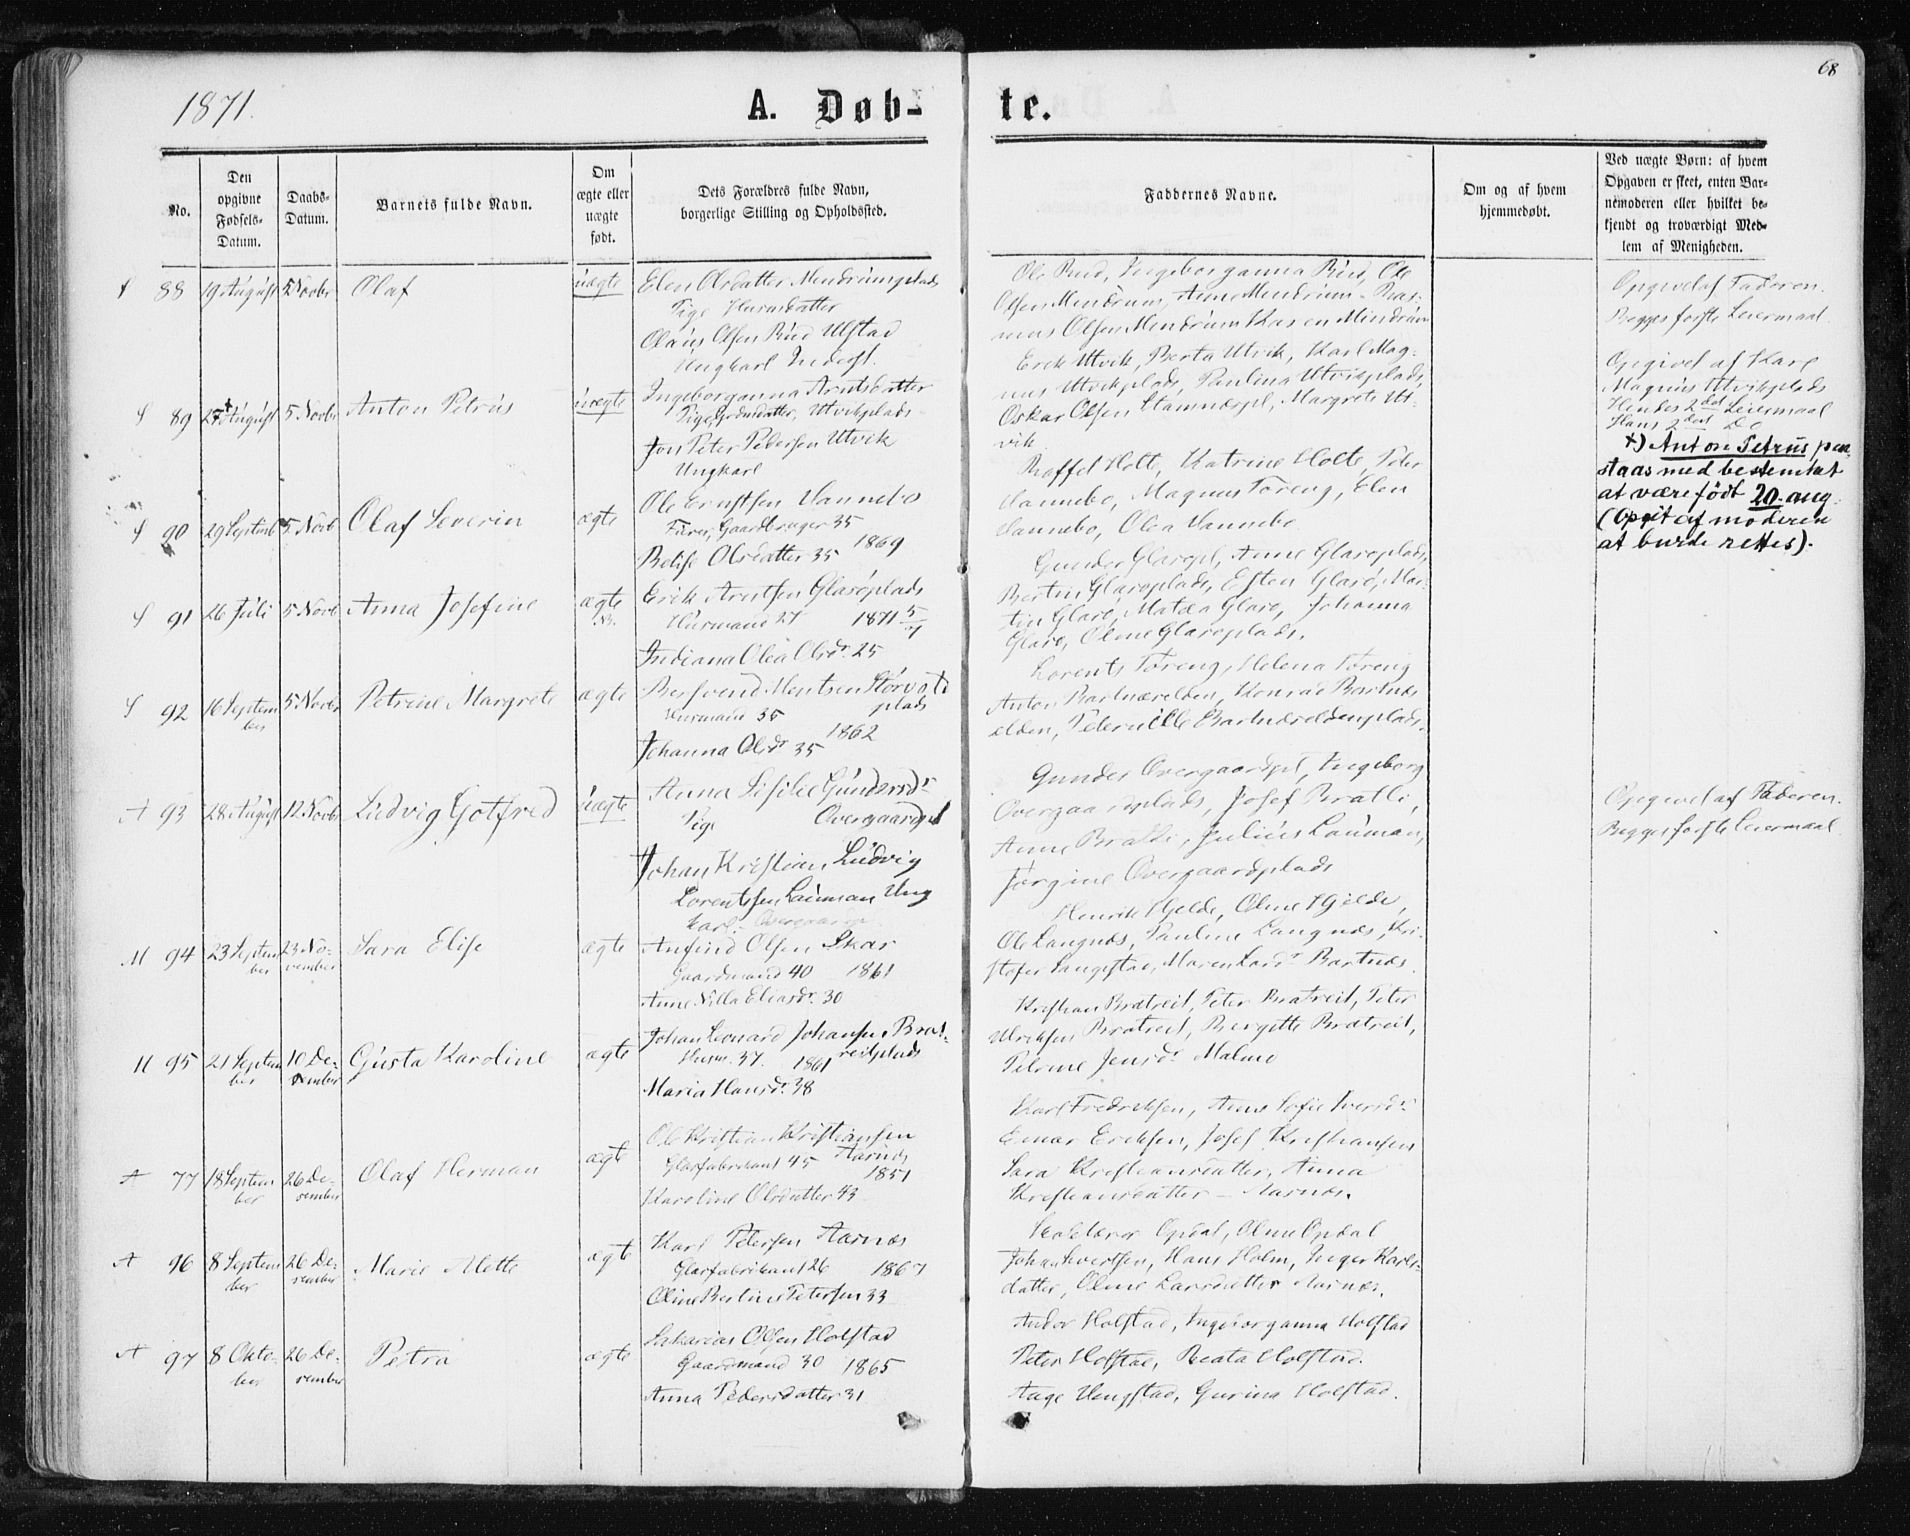 68
1871.
A. Døb-
te.
No.
Den
opgivne
Fødsels-
Datum.
Daabs-
Datum.
Barnets fulde Navn.
Om
ægte eller
uægte
født.
Dets Forældres fulde Navn,
borgerlige Stilling og Opholdssted.
Faddernes Navne.
Om og af hvem
hjemmedøbt.
Ved uægte Børn: af hvem
Opgaven er skeet, enten Bar-
nemoderen eller hvilket be-
kjendt og troværdigt Med-
lem af Menigheden.
88 19 August 5 Novbr Olaf uægte
Elen Olsdatter Mendrumplads
Pige
Olaus Olsen Rud Ulstad
Ungkarl
Ole Rud, Ingeborganna Rud, Ole
Olsen Mendrum, Anne Mendrum, Ras-
mus Olsen Mendrum Karen Mendrum
Opgivet af Faderen.
Begges første Leiermaal.
89 27 August 5 Novbr Anton Petrus uægte
Ingeborganna Arntsdatter
Pige, Utvikplads
Jon Peter Pedersen Utvik
Ungkarl
Erik Utvik, Berta Utvik, Karl Mag-
nus Utvikplads, Paulina Utvikplads,
Oskar Olsen, Margrete Ut-
vik
Opgivet af Karl
Magnus Utvikplads
Hendes 2det Leiermaal
Hans 2det Do
+) Anton Petrus paa-
staas med bestemthet
at være født 20. aug.
(Opgit af moderen
at burde rettes).
S 90 29 Septemb 5 Novb Olaf Severin ægte
Ole Erntsen Hannebo
Gaardbruger 35
1869
Olsdatter 35
Holte, Katrine Holte, Peter
Hannebo, Magnus Føreng, Elen
Hannebo, Olea Hannebo.
S 91 26 Juli 5 Novb Anna Josefine ægte
Erik Arntsen Glarøplads
Husmand 27 1871 5/7
Indiana Olea Olsdr. 25
Gunder Glarøpl, Anne Glarøplads,
Bertin Glarøplads, Esten Glarø, Mar-
tin Glarø, Matea Glarø, Johanna
Glarø, Oline Glarøplads.
S 92 16 Septem-
ber 5 Novbr Petrine Margrete ægte
Husmand 35 plads
1862
Johanna Olsdr 35
Lorents Føreng, Helena Føreng
Anton Bartnæselden, Konrad Bartnæs
elden, Peternille Bartnæseldenplads.
A 93 28 August 12 Novbr Ludvig Gotfred uægte
Anna Sisilie Gundersdr
Pige Overgaardpl
Johan Kristian Ludvig
Lorentssen Lauman Ung
karl
Gunder Overgaardpl, Ingeborg
Overgaardplads, Josef Bratli,
Anne Bratli, Julius Lauman,
Jørgine Overgaardplads
Opgivet af Faderen.
Begges første Leiermaal.
M 94 23 Septem-
ber 23 No-
vember Sara Elise ægte
Anfind Olsen Skar
Gaardmand 40 1861
Anne Nilla Eliasdr. 30
Henrik Hjelde, Oline Hjelde,
Ole Langnæs, Pauline Langnæs, Kri-
stofer Langestad, Maren Larsdr Bartnæs
M 95 21 Septem
ber 10 De-
cember Gusta Karoline ægte
Johan Leonard Johansen Brat-
Husm. 37. 1861 reitplads
Maria Hansdr. 38
Kristian Bratreit, Peter Bratreit, Peter
Ulriksen Bratreit, Bergitte Bratreit,
Petrine Jensdr Malmo
A 77 18 Septem
ber 26 De-
cember Olaf Herman ægte
Ole Kristian Kristiansen
Glasfabrikant 45 Aarnæs
1851
Karoline Olsdatter 43
Karl Fredriksen, Anne Sofie Iversdr
Einar Eriksen, Josef Kristiansen
Sara Kristiansdatter, Anna
Kristiansdatter - Aarnæs.
A 96 8 Septem
ber 26 De-
cember Marie Mette ægte
Karl Petersen Aarnæs
Glasfabrikant 26 1867
Oline Bertine Petersen 33
Skolelærer Opdal, Oline Opdal
Johan Sivertsen, Hans Holm, Inger Karls-
datter, Oline Larsdatter Aarnæs.
A 97 8 Okto-
ber 26 De-
cember Petra ægte
Sakarias Olsen Holstad
Gaardmand 30 1865
Anna Pedersdatter 31
Andor Holstad, Ingeborganna Holstad
Peter Holstad, Beata Holstad.
Aage Ungstad, Gurina Holstad.